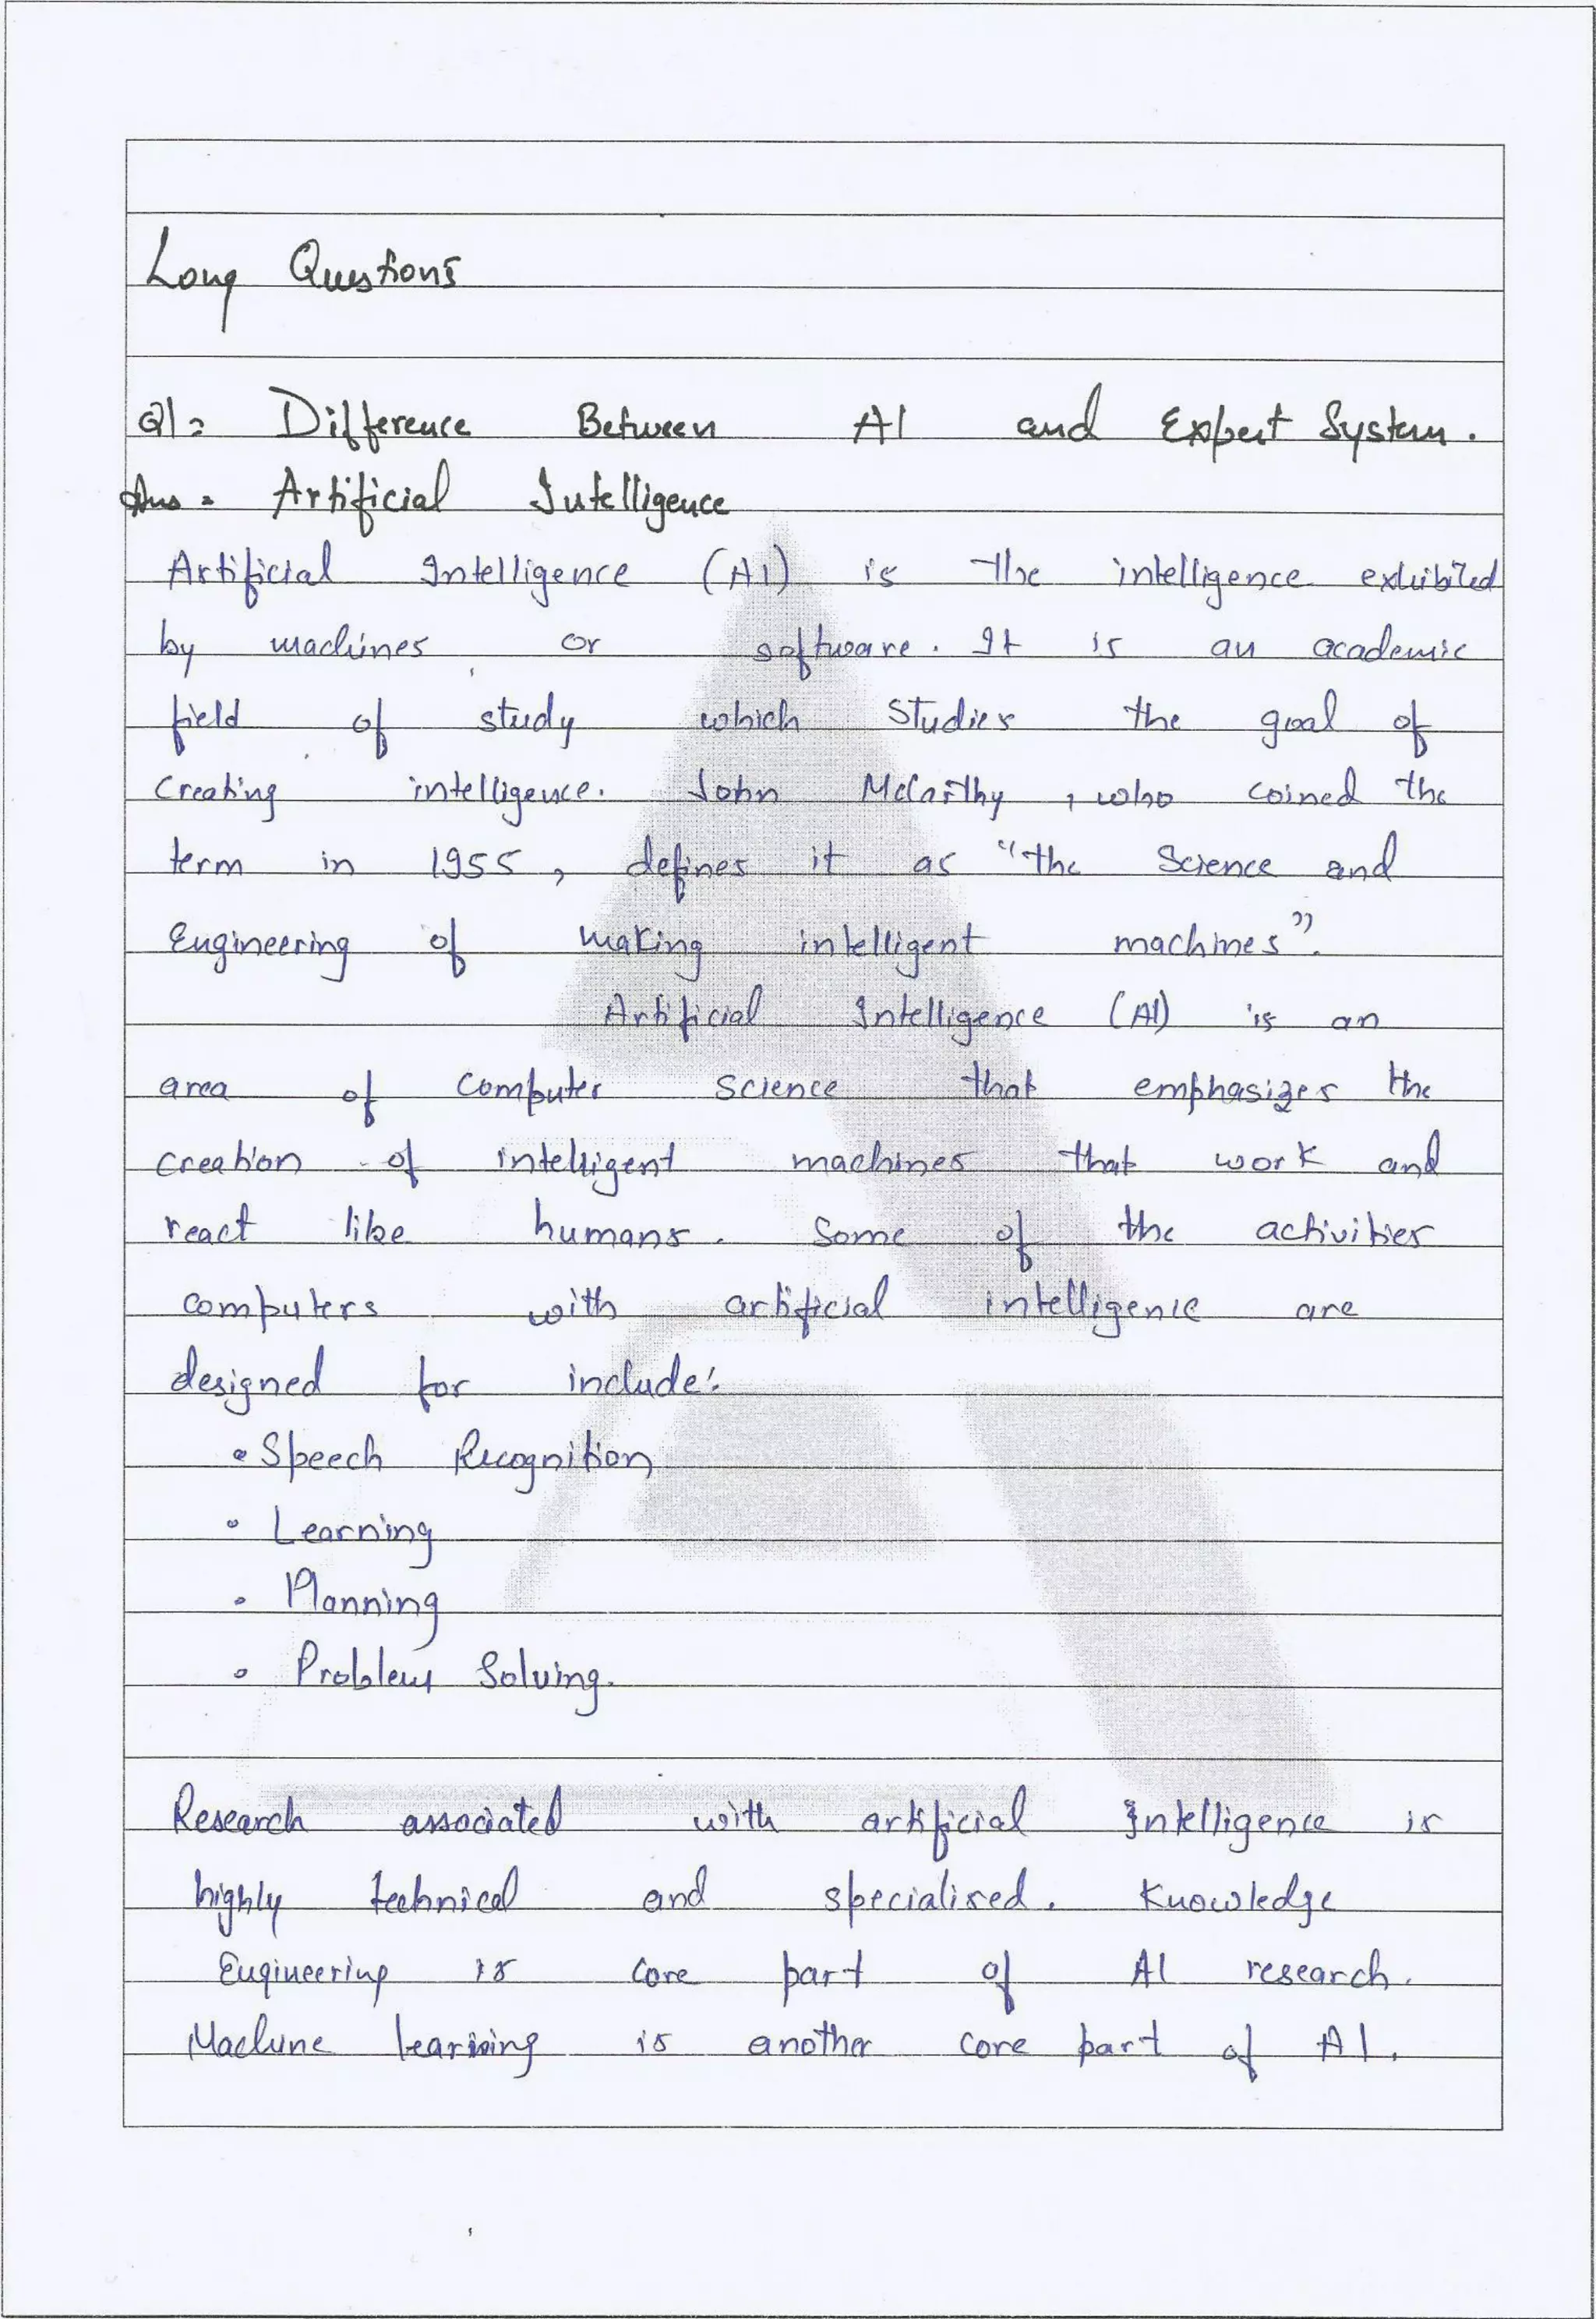 Long Questions
Q1= Difference Between AI and Expert System.
Ans = Artificial Intelligence
Artificial Intelligence (AI) is the intelligence exhibited
by machines or software. It is an academic
field of study which studies the goal of
creating intelligence. John McCarthy, who coined the
term in 1955, defines it as "the Science and
Engineering of making intelligent machines".
Artificial Intelligence (AI) is an
area of computer science that emphasizes the
creation of intelligent machines that work and
react like humans. Some of the activities
computers with artificial intelligence are
designed for include:
• Speech Recognition
• Learning
• Planning
• Problem Solving.
Research associated with artificial Intelligence is
highly technical and specialised. Knowledge
Engineering is core part of AI research.
Machine learning is another core part of AI.